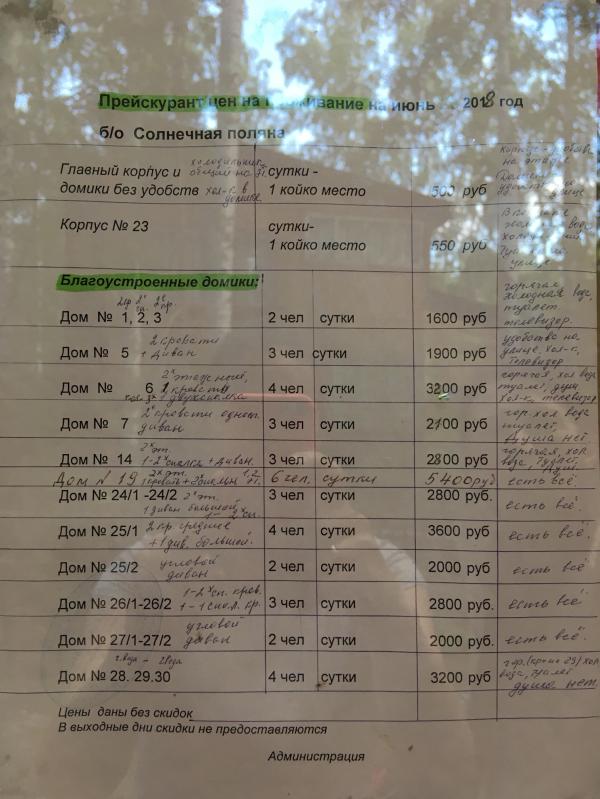 Прейскурант цен на проживание на июнь 2018 год
б/о Солнечная поляна
Главный корпус и холодильник общий на эт. сутки -
домики без удобств хол-к в домике 1 койко место 500 руб
Корпус № 23 сутки-
1 койко место 550 руб
Благоустроенные домики:
горячая
холодная вода,
Дом № 1, 2, 3 2 чел сутки 1600 руб туалет
телевизор.
2 кровати удобства на
Дом № 5 + диван 3 чел сутки 1900 руб улице, хол-к,
телевизор
2х этажный, горячая, хол вода
Дом № 6 4 чел сутки 3200 руб туалет, душ
хол-к, телевизор
2е кровати одност. гор. хол вода
Дом № 7 диван 3 чел сутки 2100 руб туалет,
душа нет.
2х эт. горячая, хол.
Дом № 14 1-2х спалка + диван. 3 чел сутки 2800 руб вода, туалет,
душ.
Дом № 19 2х эт. 6 чел. сутки 5400 руб есть всё.
Дом № 24/1 -24/2 2х эт. 3 чел сутки 2800 руб. есть всё.
1 диван большой,
Дом № 25/1 2 кр. средние 4 чел сутки 3600 руб есть всё.
+1 див. большой.
Дом № 25/2 угловой диван 2 чел сутки 2000 руб есть всё
1-2х сп. кров.
Дом № 26/1-26/2 1-1 спал. кр. 3 чел сутки 2800 руб. есть всё
угловой
Дом № 27/1-27/2 диван 2 чел сутки 2000 руб. есть всё.
Дом № 28. 29.30 4 чел сутки 3200 руб вода, туалет
душа нет.
Цены даны без скидок
В выходные дни скидки не предоставляются
Администрация